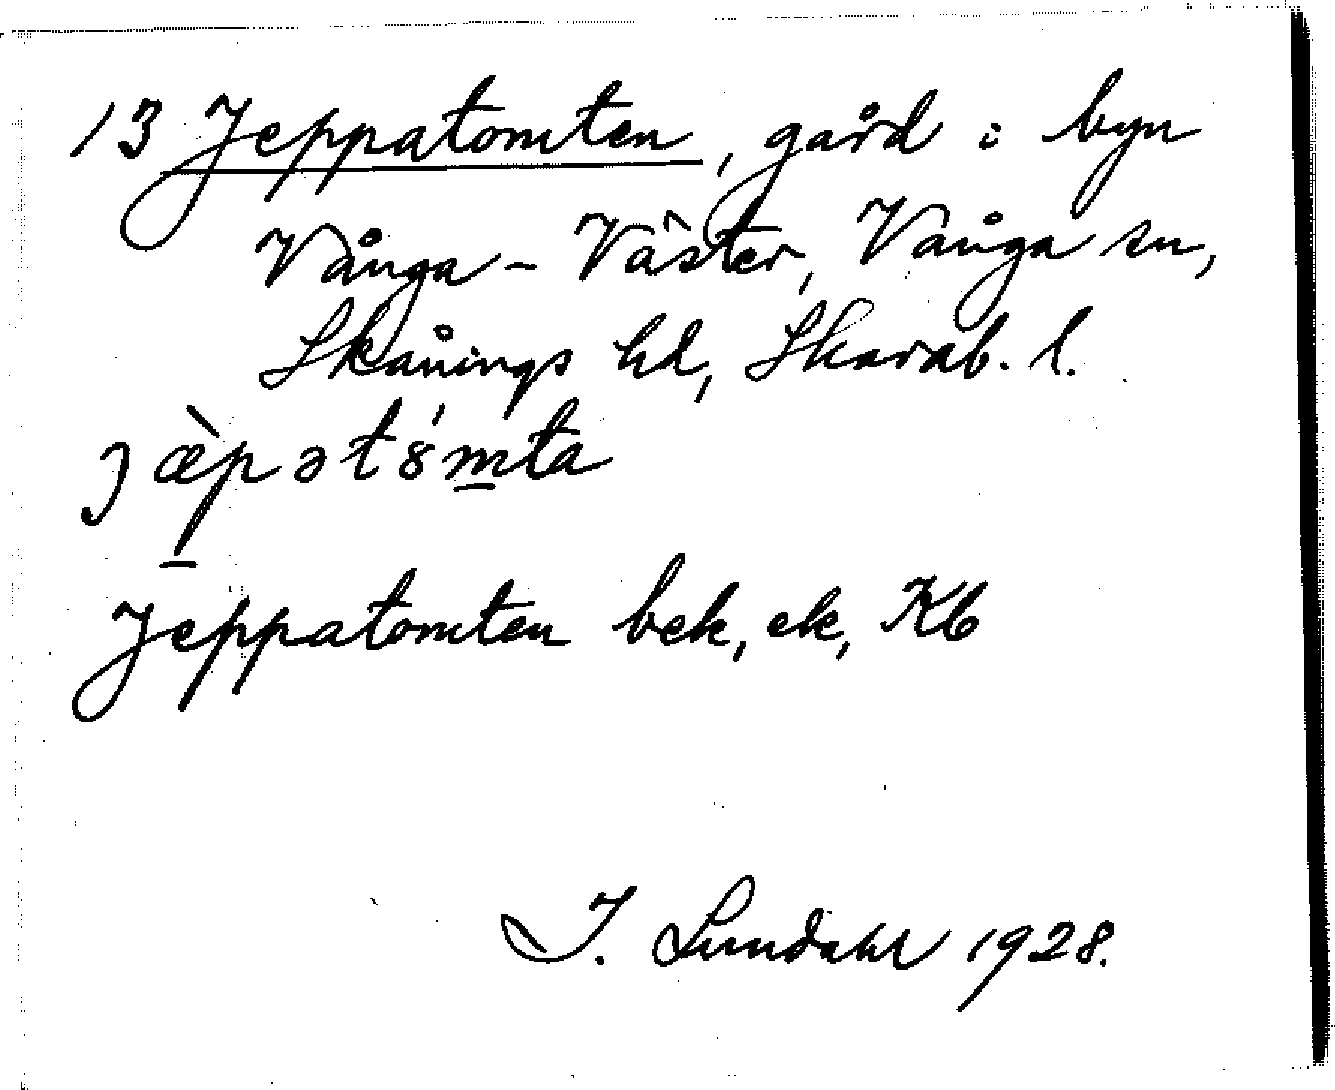 13 Jeppatomten, gård i byn
Vånga - Väster, Vånga sn,
Skånings hd, Skarab. l.
ȷæ̀p̱ətȣ́m̱ta
Jeppatomten bek, ek, Kb
I. Lundahl 1928.